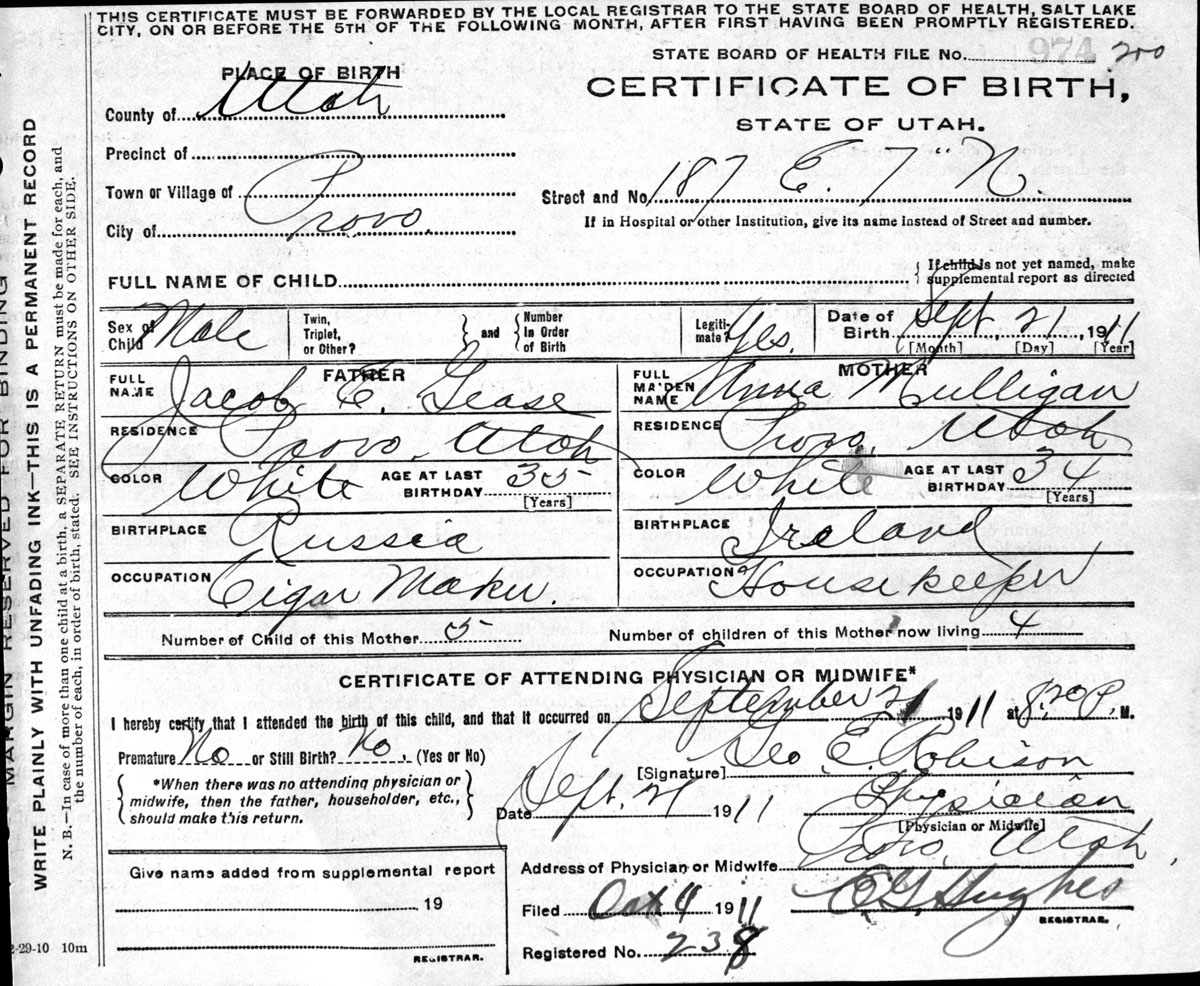 THIS CERTIFICATE MUST BE FORWARDED BY THE LOCAL REGISTRAR TO THE STATE BOARD OF HEALTH, SALT LAKE
CITY, ON OR BEFORE THE 5TH OF THE FOLLOWING MONTH, AFTER FIRST HAVING BEEN PROMPTLY REGISTERED.
STATE BOARD OF HEALTH FILE No. 974 200
PLACE OF BIRTH
CERTIFICATE OF BIRTH,
County of Utah
STATE OF UTAH.
Precinct of
Town or Village of
Street and No 187 E. 7" N.
City of Provo.
If in Hospital or other Institution, give its name instead of Street and number.
FULL NAME OF CHILD { If child is not yet named, make
supplemental report as directed
Sex of Child Male
Twin, Triplet, or Other? } and { Number in Order of Birth
Legiti- mate? Yes.
Date of Birth Sept. 21, 1911
[Month] [Day] [Year]
FATHER
FULL NAME Jacob E. Gease
RESIDENCE Provo, Utah
COLOR White AGE AT LAST BIRTHDAY 35 [Years]
BIRTHPLACE Russia
OCCUPATION Cigar Maker.
MOTHER
FULL MAIDEN NAME Anna Mulligan
RESIDENCE Provo, Utah
COLOR White AGE AT LAST BIRTHDAY 34 [Years]
BIRTHPLACE Ireland
OCCUPATION Housekeeper
Number of Child of this Mother 5 Number of children of this Mother now living 4
CERTIFICATE OF ATTENDING PHYSICIAN OR MIDWIFE*
I hereby certify that I attended the birth of this child, and that it occurred on September 21 1911 at 8:20 P. M.
Premature No or Still Birth? No. (Yes or No)
[Signature] Geo. E. Robison
{ *When there was no attending physician or
midwife, then the father, householder, etc.,
should make this return. }
Date Sept. 21 1911 Physician
[Physician or Midwife]
Address of Physician or Midwife Provo, Utah,
Give name added from supplemental report
19
REGISTRAR.
Filed Oct 4 1911 E G Hughes
REGISTRAR.
Registered No. 238
2-29-10 10m
MARGIN RESERVED FOR BINDING
WRITE PLAINLY WITH UNFADING INK—THIS IS A PERMANENT RECORD
N. B.—In case of more than one child at a birth, a SEPARATE RETURN must be made for each, and
the number of each, in order of birth, stated. SEE INSTRUCTIONS ON OTHER SIDE.